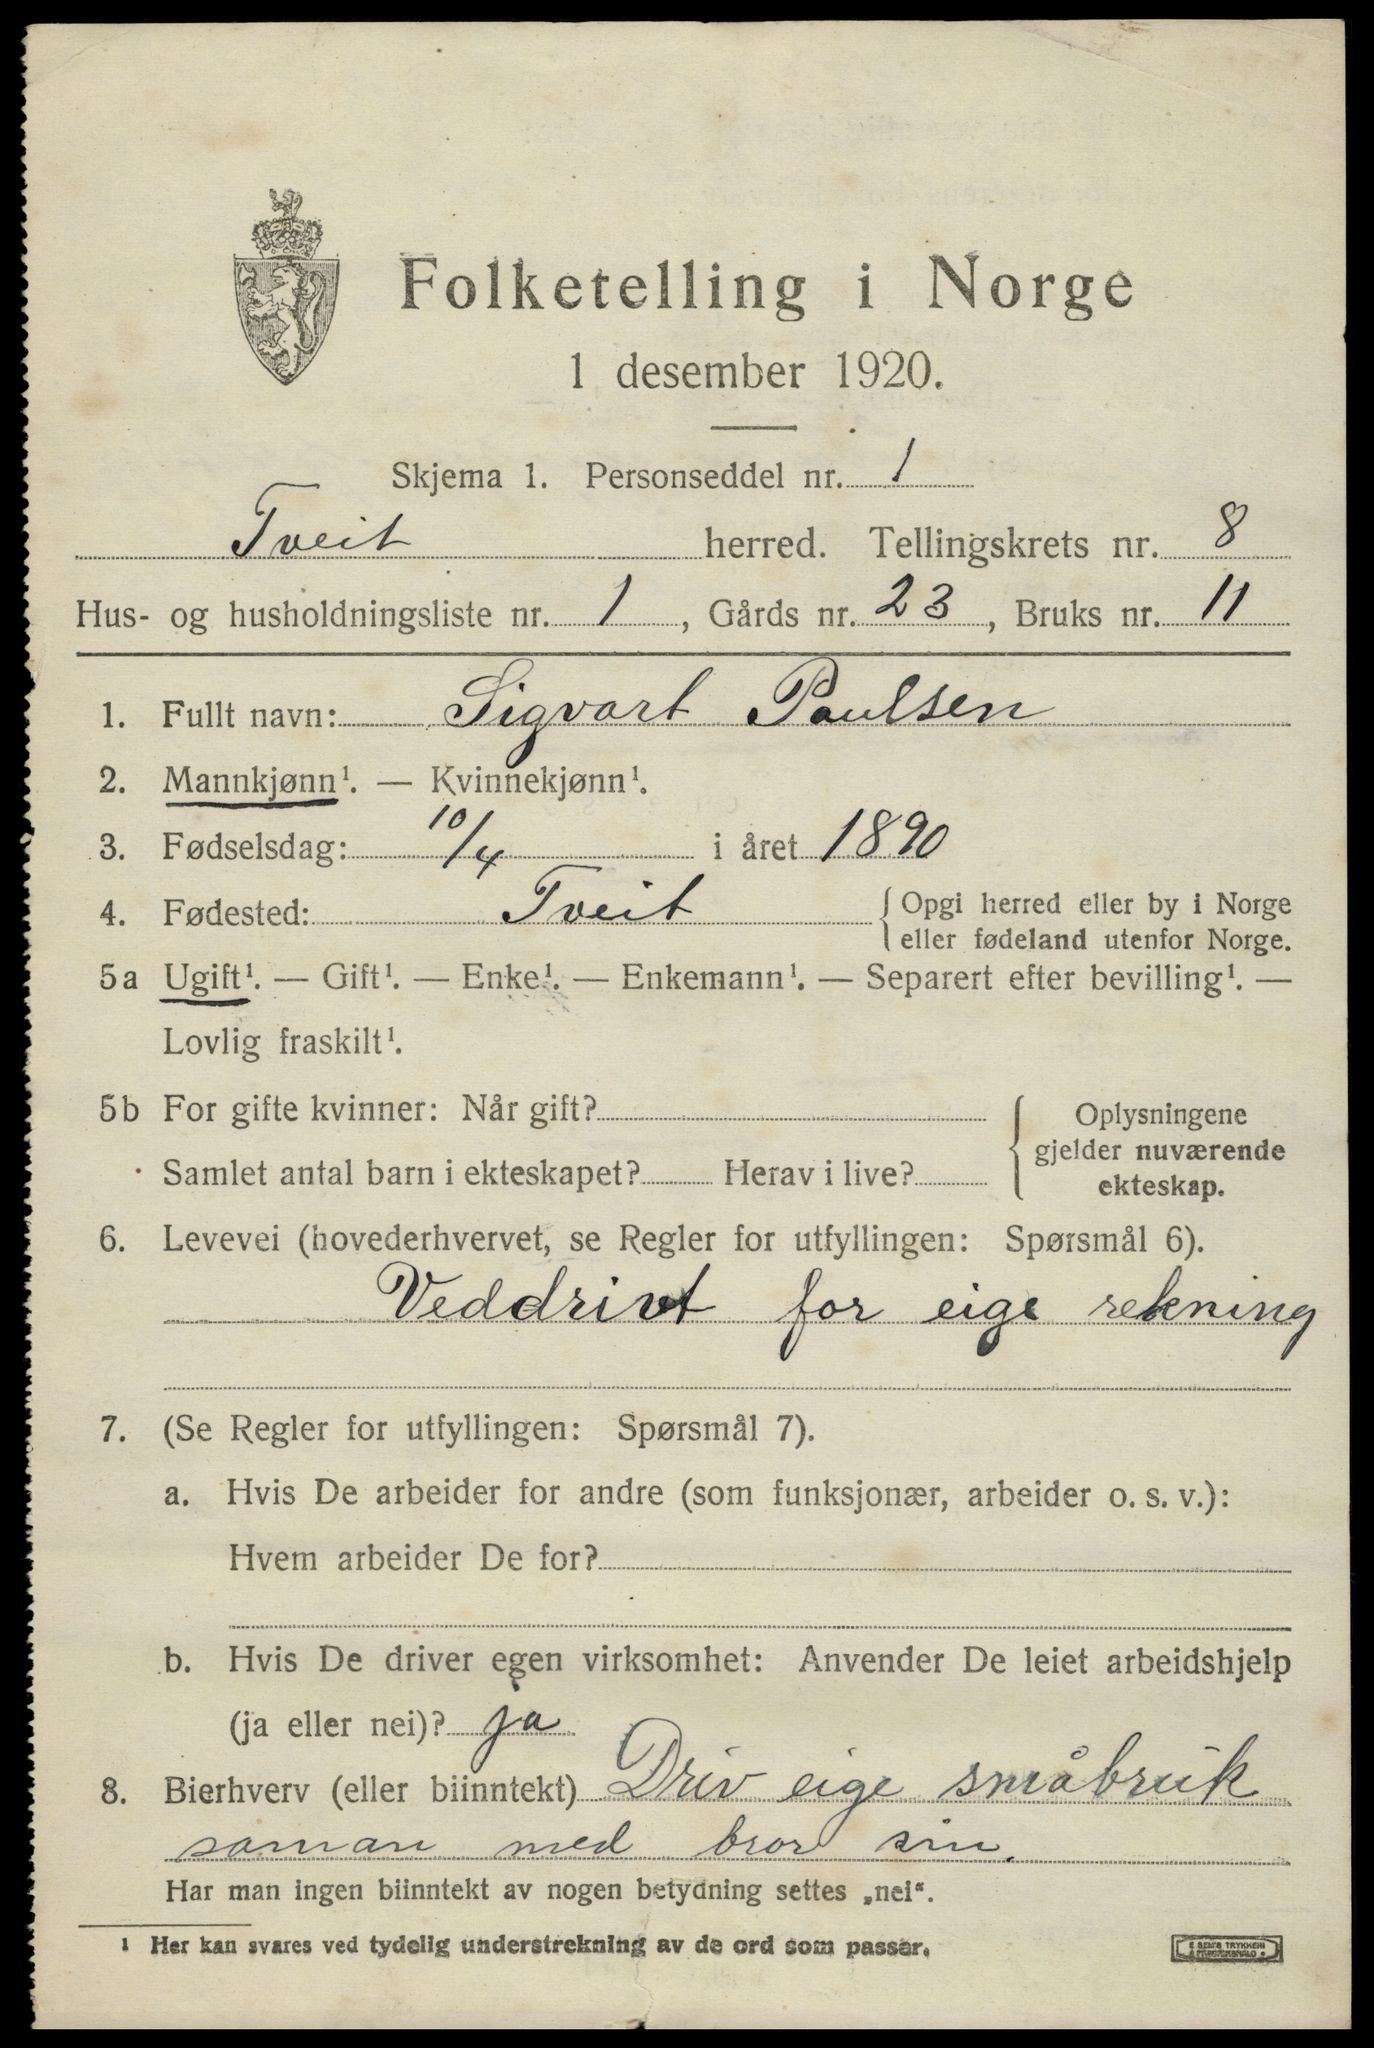 Folketelling i Norge
1 desember 1920.
Skjema 1. Personseddel nr. 1
Tveit herred. Tellingskrets nr. 8
Hus- og husholdningsliste nr. 1, Gårds nr. 23, Bruks nr. 11
1. Fullt navn: Sigvart Paulsen
2. Mannkjønn¹. — Kvinnekjønn¹.
3. Fødselsdag: 10/4 i året 1890
4. Fødested: Tveit { Opgi herred eller by i Norge
eller fødeland utenfor Norge.
5a Ugift¹. — Gift¹. — Enke¹. — Enkemann¹. — Separert efter bevilling¹. —
Lovlig fraskilt¹.
5b For gifte kvinner: Når gift?
Samlet antal barn i ekteskapet? Herav i live?
{ Oplysningene
gjelder nuværende
ekteskap.
6. Levevei (hovederhvervet, se Regler for utfyllingen: Spørsmål 6).
Veddrivt for eige rekning
7. (Se Regler for utfyllingen: Spørsmål 7).
a. Hvis De arbeider for andre (som funksjonær, arbeider o. s. v.):
Hvem arbeider De for?
b. Hvis De driver egen virksomhet: Anvender De leiet arbeidshjelp
(ja eller nei)? ja
8. Bierhverv (eller biinntekt) Driv eige småbruk
saman med bror sin.
Har man ingen biinntekt av nogen betydning settes „nei“.
¹ Her kan svares ved tydelig understrekning av de ord som passer.